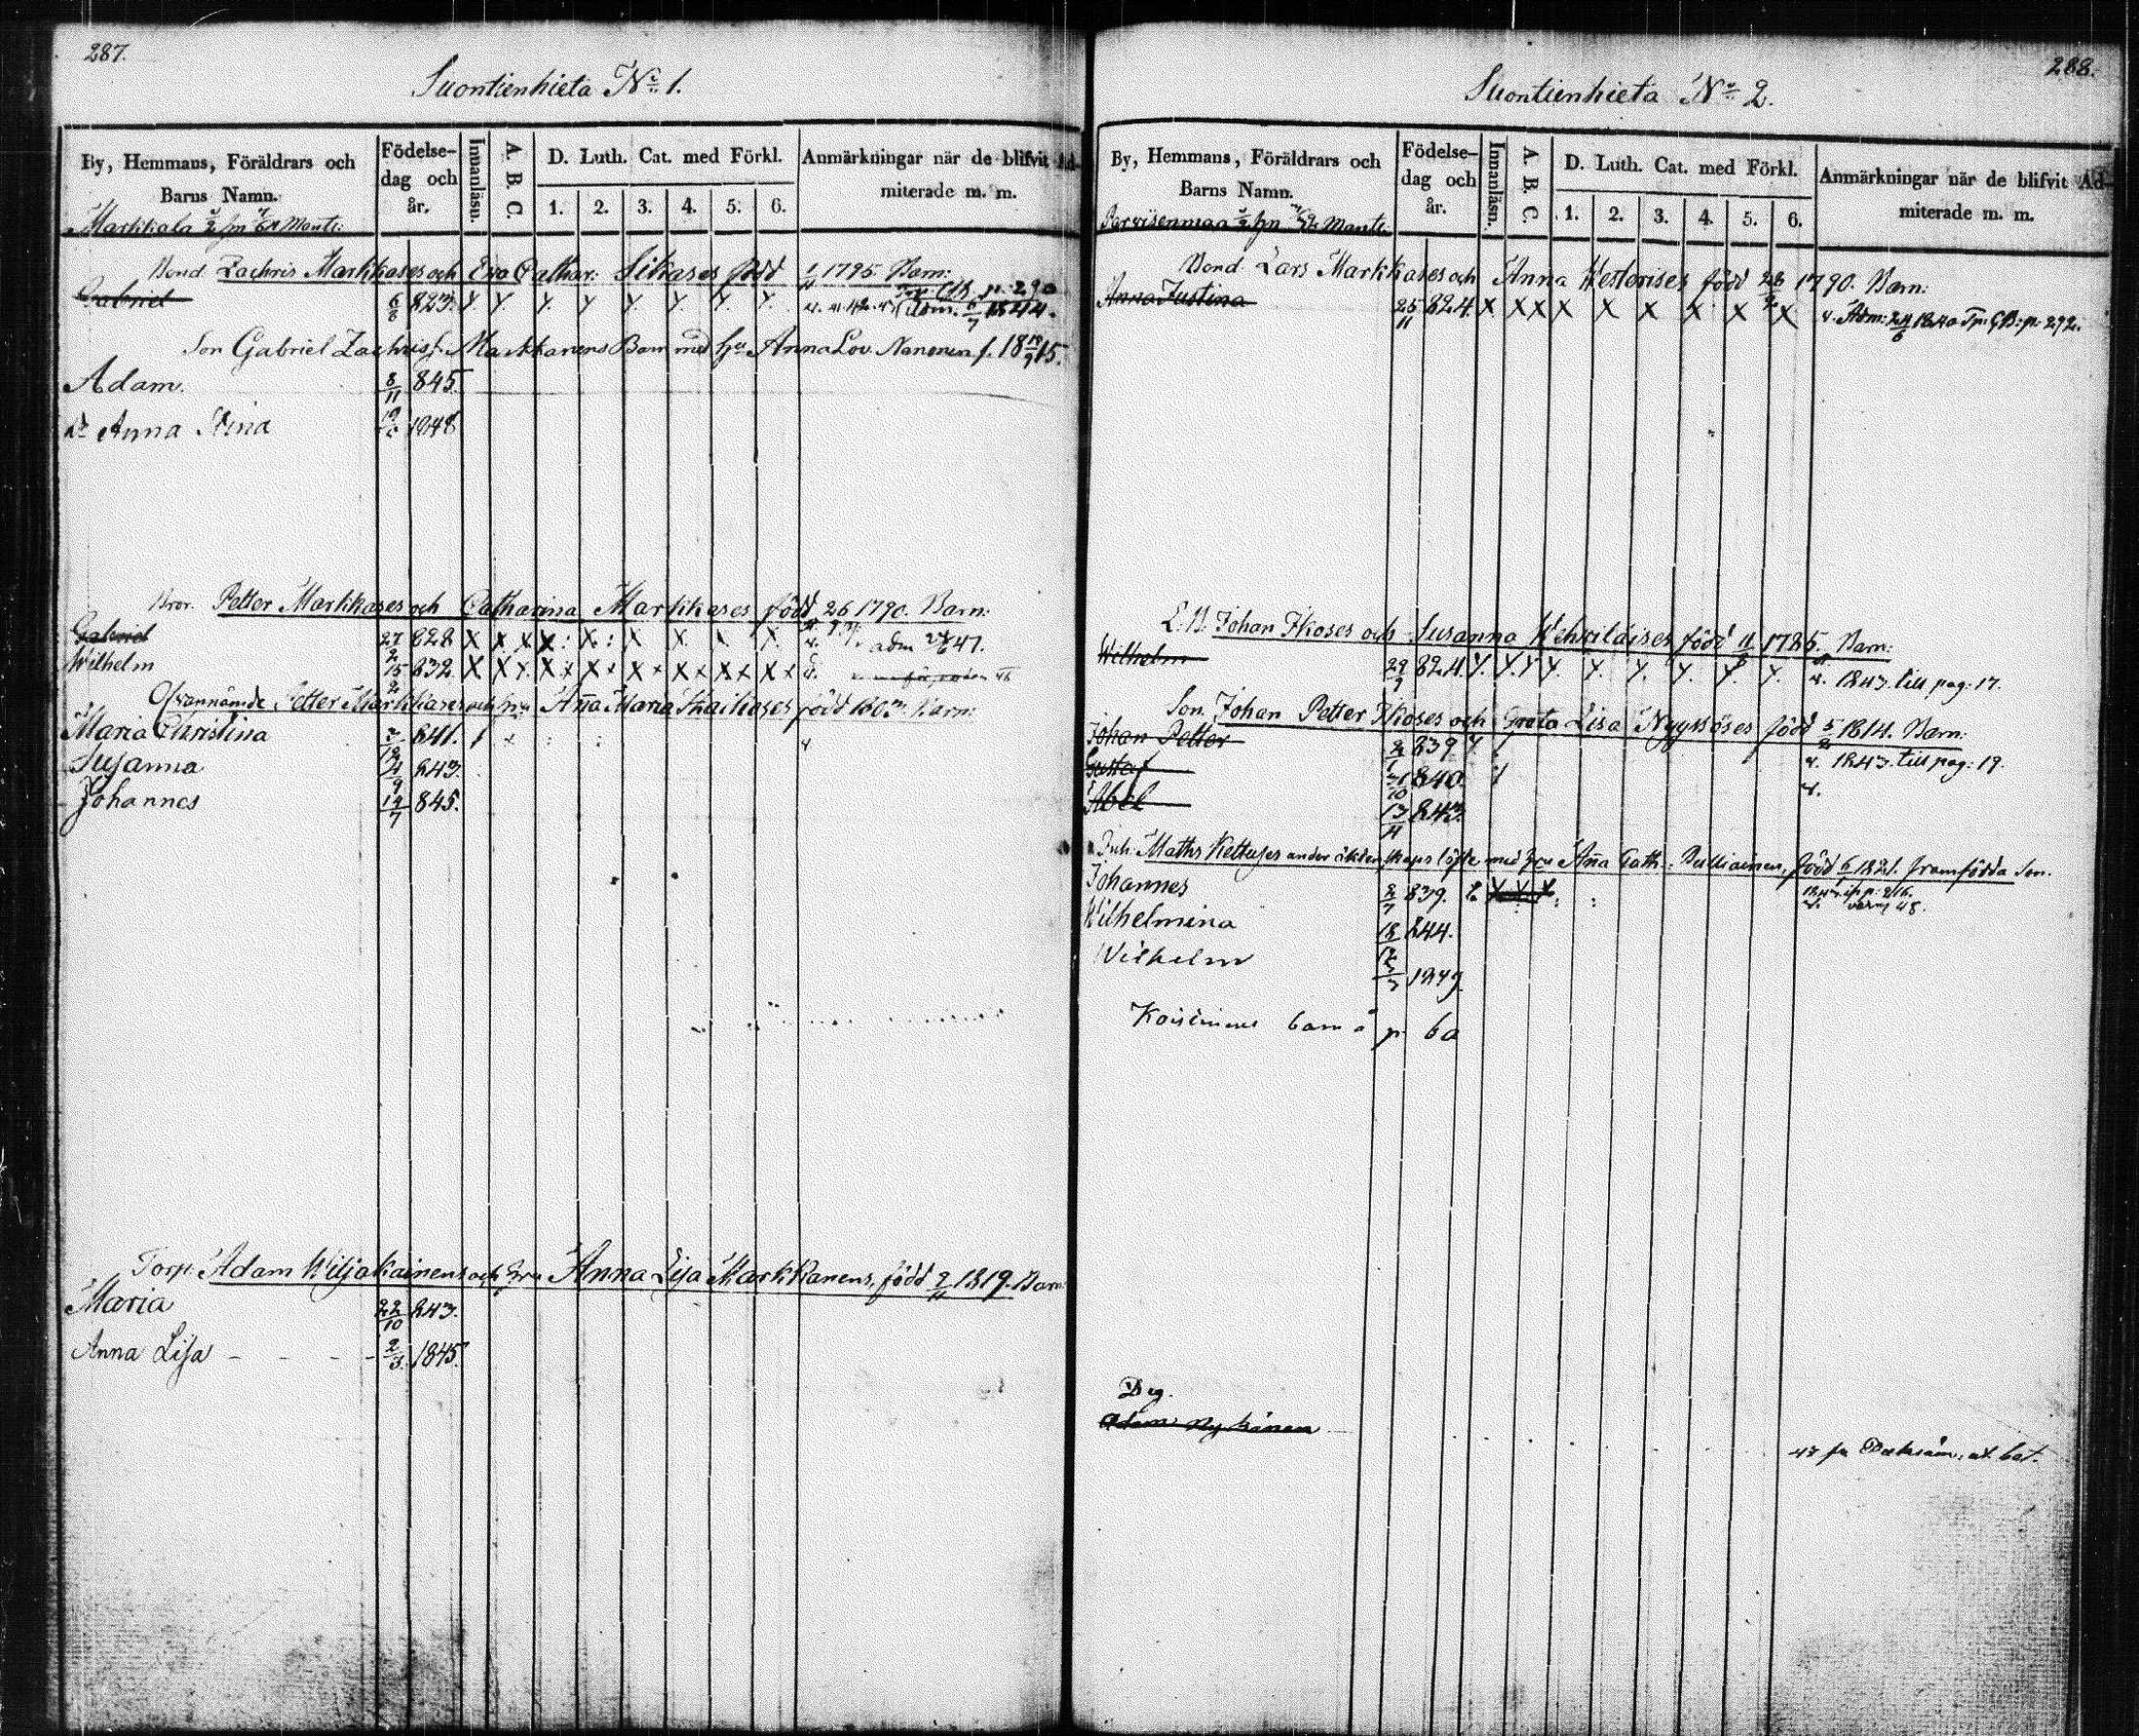 287.
Suontienhieta No 1.
By, Hemmans, Föräldrars och Barns Namn.
Födelse-dag och år.
Innanläsn.
A. B. C.
D. Luth. Cat. med Förkl.
1. 2. 3. 4. 5. 6.
Anmärkningar när de blifvit Ad-
miterade m. m.
Markkala 1/2 hn Mantl:
Bond Zachris Markkases och Eva Cathar: Sikases född 1795. Barn:
Gabriel 6/6 823. Adm. 6/7 1844. p. 290
Son Gabriel Zachriss. Markkanens Barn med hu Anna Lov. Nanonen f. 18 18/9 15.
Adam. 8/11 845.
dr Anna Stina 1848
Bror. Petter Markkases och Catharina Markkases född 26 1790. Barn:
Gabriel 27/2 828 X X X X : X : X X. X. X. adm 47.
Wilhelm 15/2 832 X X X. X X X X X X
Ofvannämde Petter Markkases och hu Anna Maria född Barn:
Maria Christina 841.
Susanna 843.
Johannes 12/7 845.
Torp. Adam Wiljakainens och hru Anna Lisa Markkanens, född 9/11 1819. Barn
Maria 22/10 843.
Anna Lisa - - - - 2/3. 1845.
288.
Suontienhieta No 2.
By, Hemmans, Föräldrars och Barns Namn.
Födelse-dag och år.
Innanläsn.
A. B. C.
D. Luth. Cat. med Förkl.
1. 2. 3. 4. 5. 6.
Anmärkningar när de blifvit Ad-
miterade m. m.
hn Mantl
Bond Lars Markkases och Anna född 1790. Barn:
Anna Justina 25/11 824. X X X X X X X X X Adm: 24/6 1840 p. 292.
Johan Ikoses och Susanna Wehviläises född 11 1785. Barn:
Wilhelm 29/9 824. 1843 till pag: 17.
Son, Johan Petter Ikoses och Greta Lisa Nyyssöses född 5 1814. Barn:
Johan Petter 839 1843 till pag: 19.
Gustaf 21/10 840.
Abel 843.
Inh. Maths Kettuses under äktenskaps löfte med hru Anna Cath: Pulliainen, född 6 1821. framfödda Son.
Johannes 2/7 839.
Wilhelmina 844.
Wilhelm 1849
barn å p. 60
Drg.
Adam Nykänen
47 fr